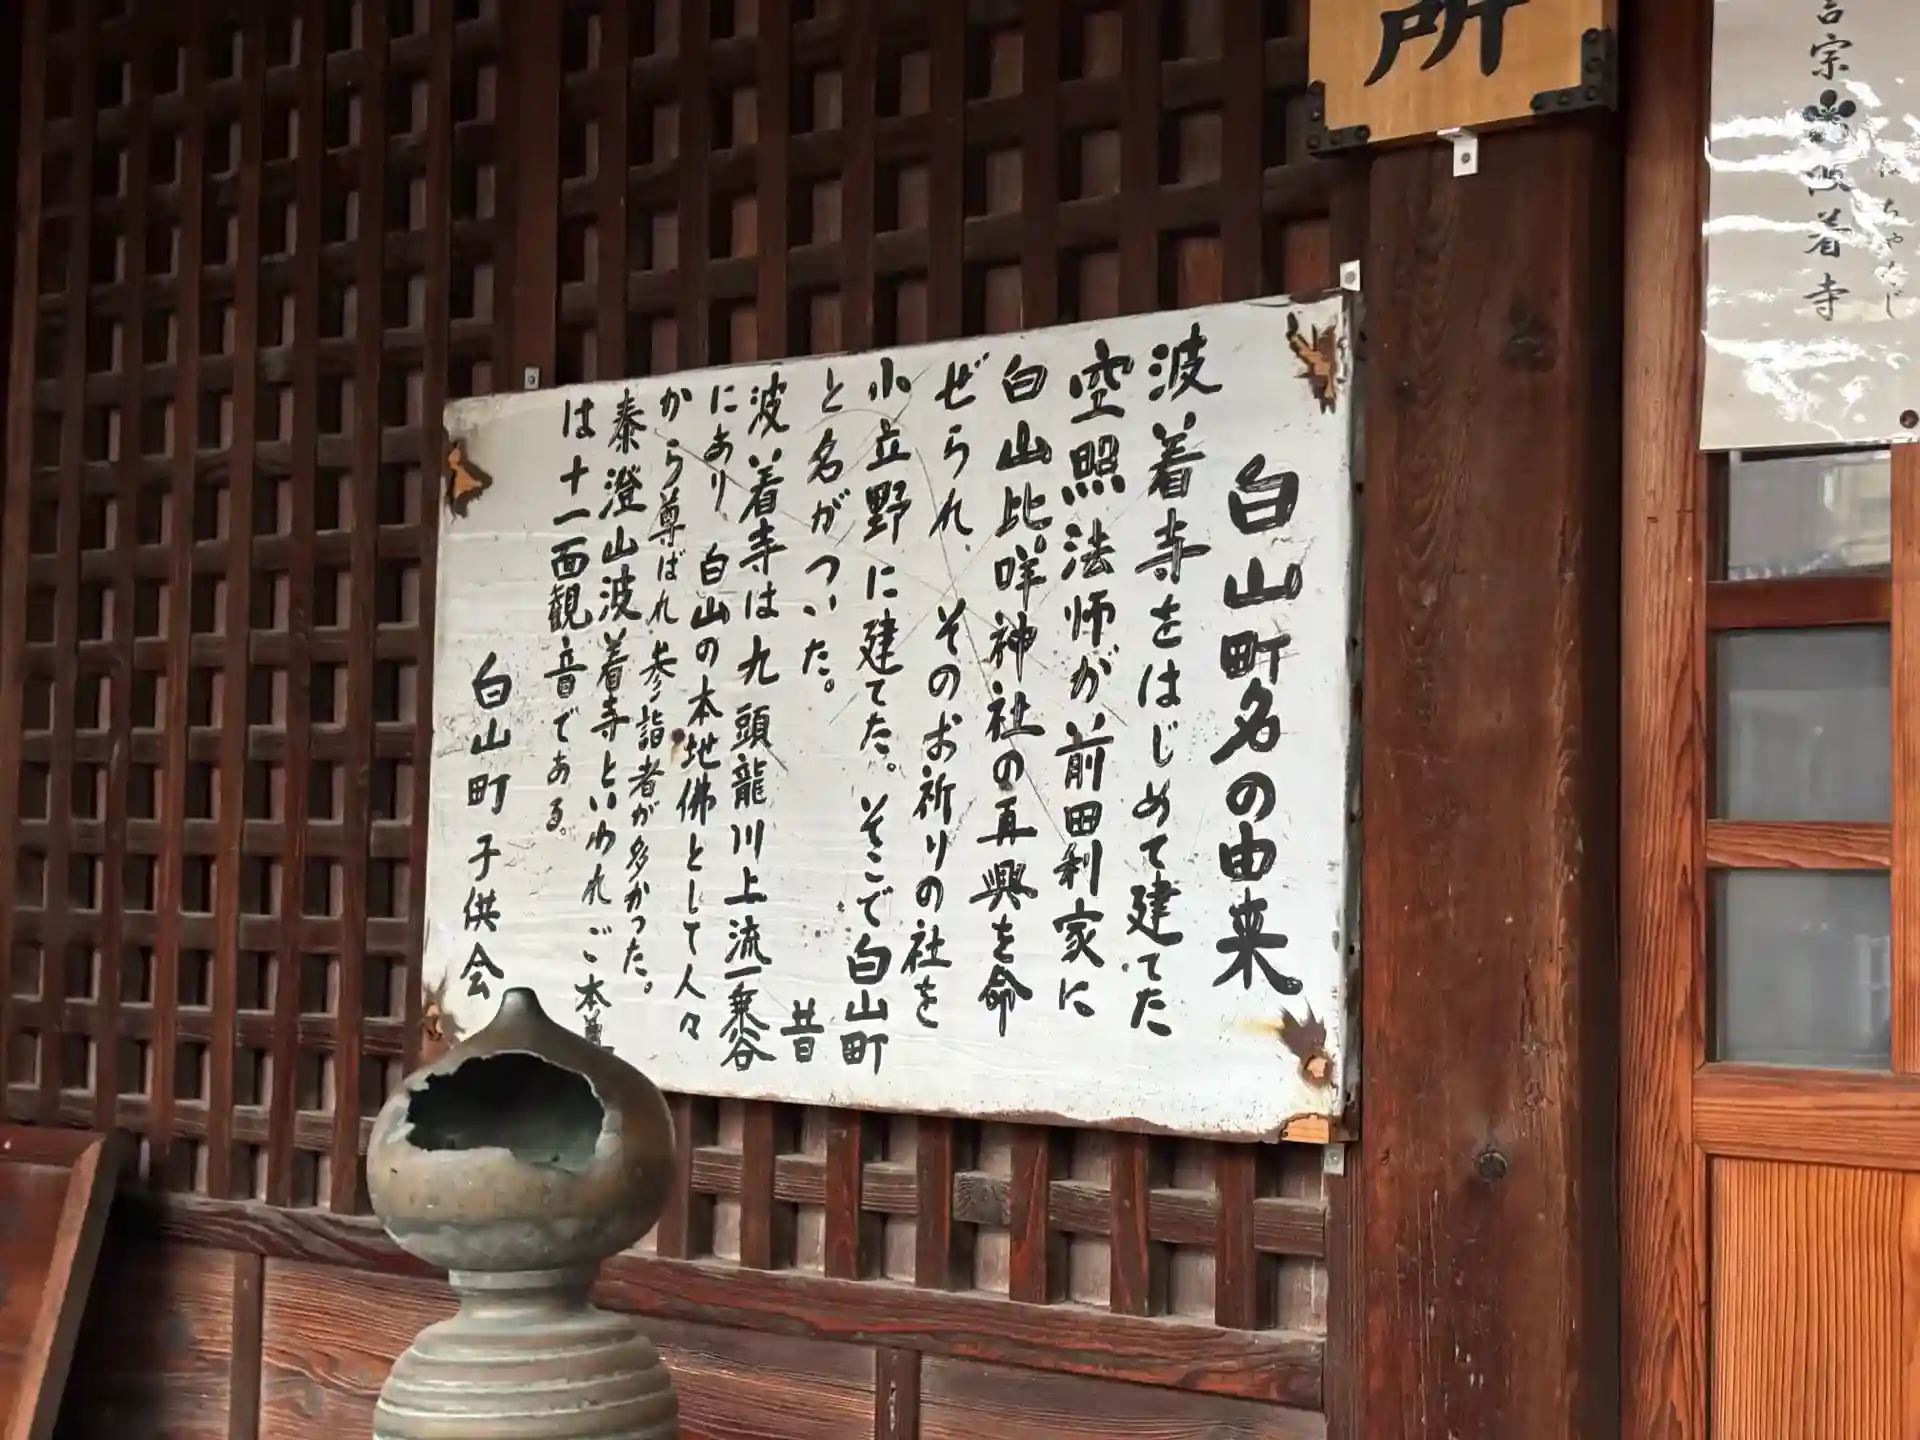 白山町名の由来。
波着寺をはじめて建てた
空照法师が前田利家に
白山比咩神社の再興を命
ぜられ、そのお祈りの社を
小立野に建てた。そこで白山町
と名がついた。昔
波着寺は九頭龍川上流一乗谷
にあり、白山の本地佛として人々
から尊ばれ参詣者が多かった。
泰澄山波着寺といわれご本尊
は十一面観音である。
白山町子供会
所
言宗 波着寺
はちゃくじ